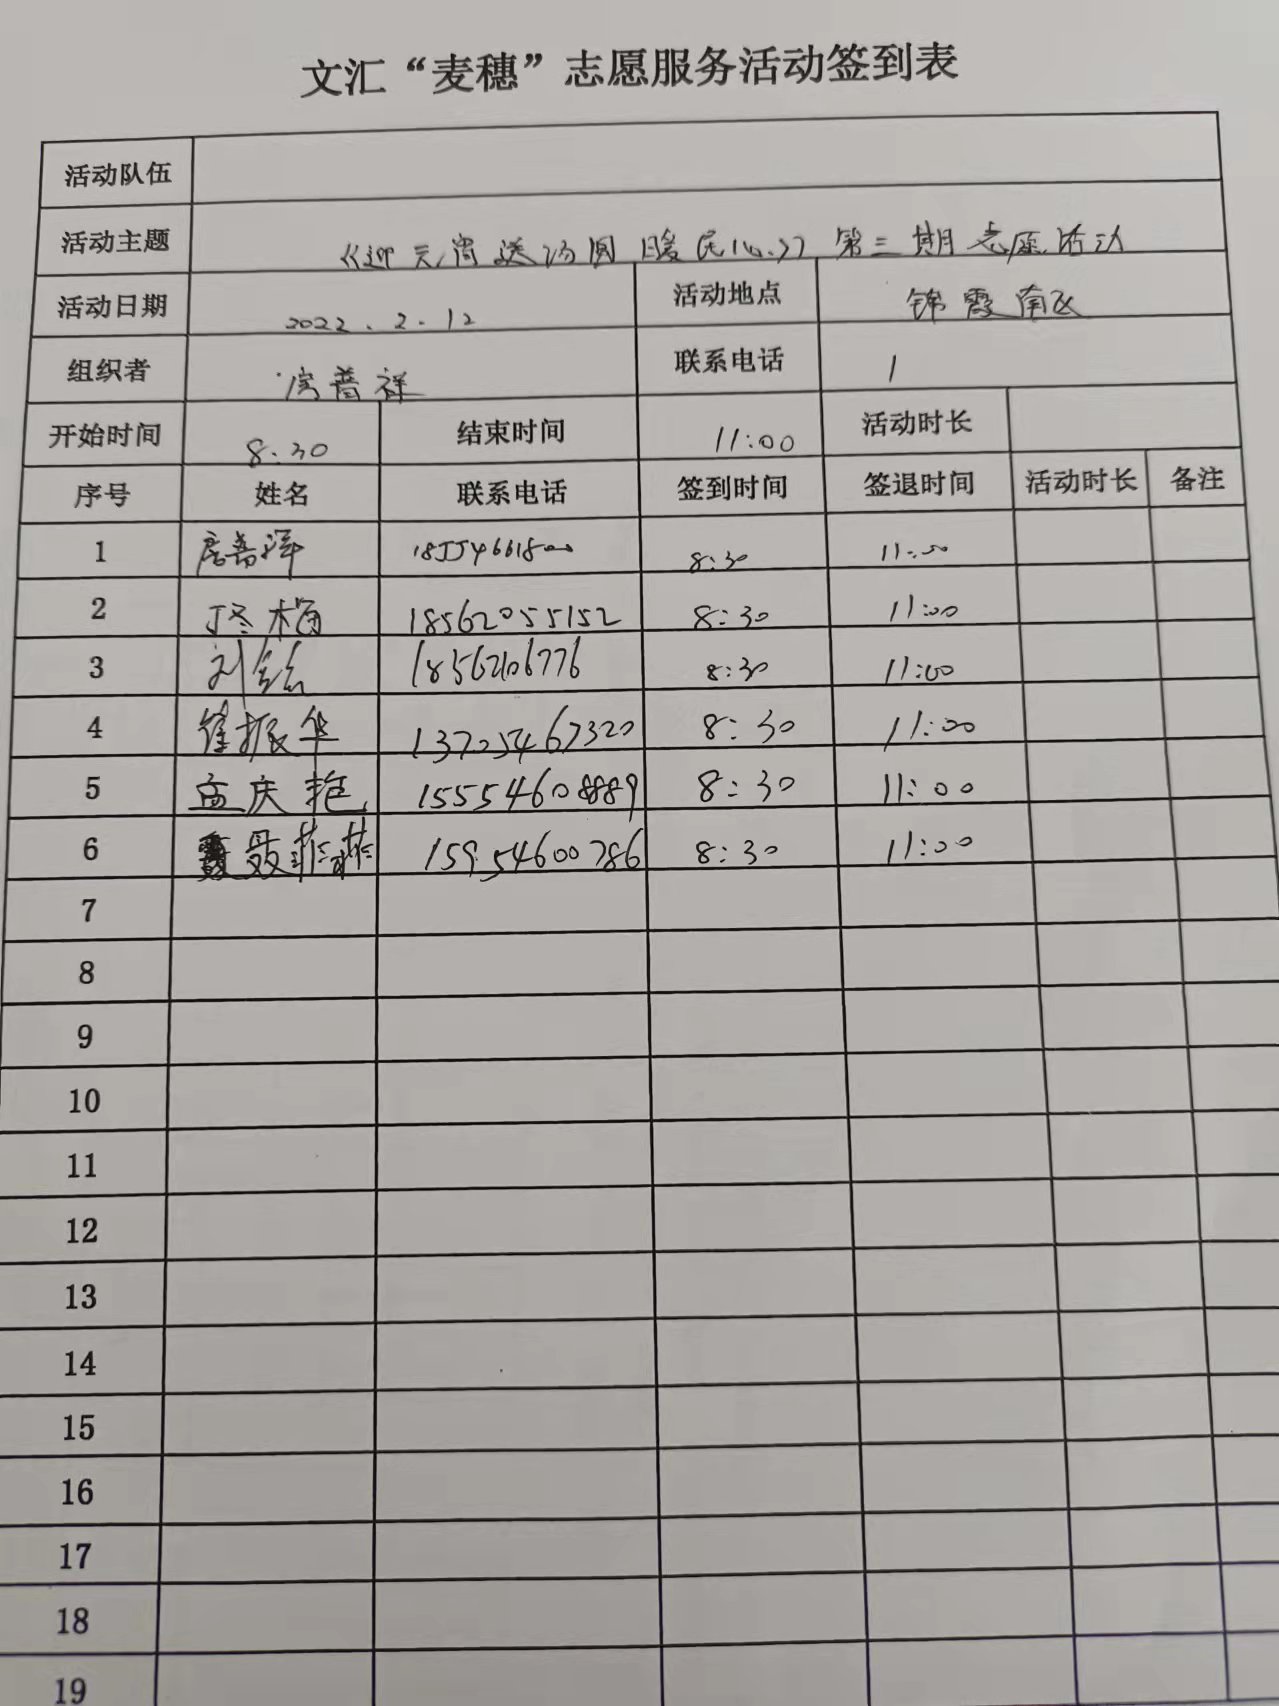 文汇“麦穗”志愿服务活动签到表
活动队伍
活动主题 《迎元宵送汤圆 暖民心》第三期志愿活动
活动日期 2022.2.12 活动地点 锦霞南区
组织者 房普祥 联系电话 1
开始时间 8:30 结束时间 11:00 活动时长
序号 姓名 联系电话 签到时间 签退时间 活动时长 备注
1 房普祥 18554661800 8:30 11:00
2 冬梅 18562055152 8:30 11:00
3 刘 18562106776 8:30 11:00
4 徐振华 13705467320 8:30 11:00
5 孟庆艳 15554608889 8:30 11:00
6 聂菲菲 15954600786 8:30 11:00
7
8
9
10
11
12
13
14
15
16
17
18
19